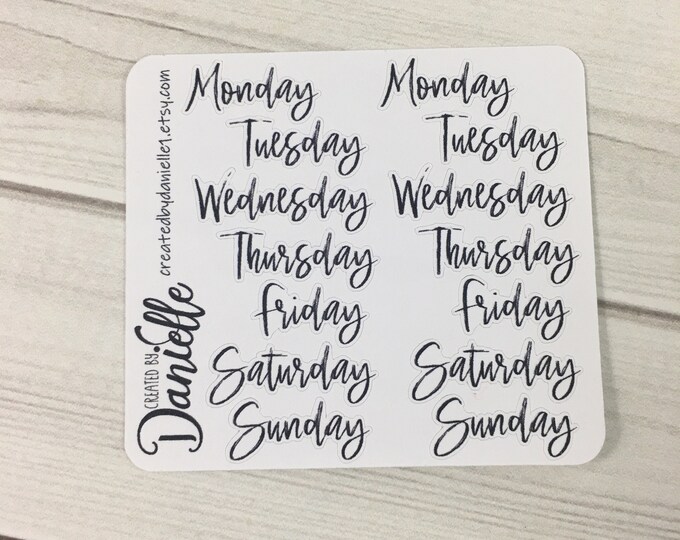 CREATED BY:
Danielle
createdbydanielle1.etsy.com
Monday
Tuesday
Wednesday
Thursday
Friday
Saturday
Sunday
Monday
Tuesday
Wednesday
Thursday
Friday
Saturday
Sunday